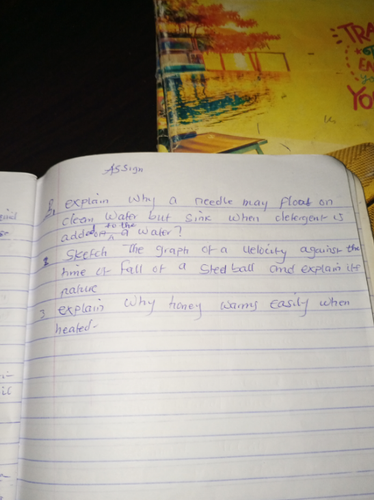 Assign
1, explain why a needle may float on
clean water but sink when detergent is
added to the water?
2. sketch the graph of a velocity against the
time of fall of a steel ball and explain its
nature
3. explain why honey warms easily when
heated.
TRA
EN
YO